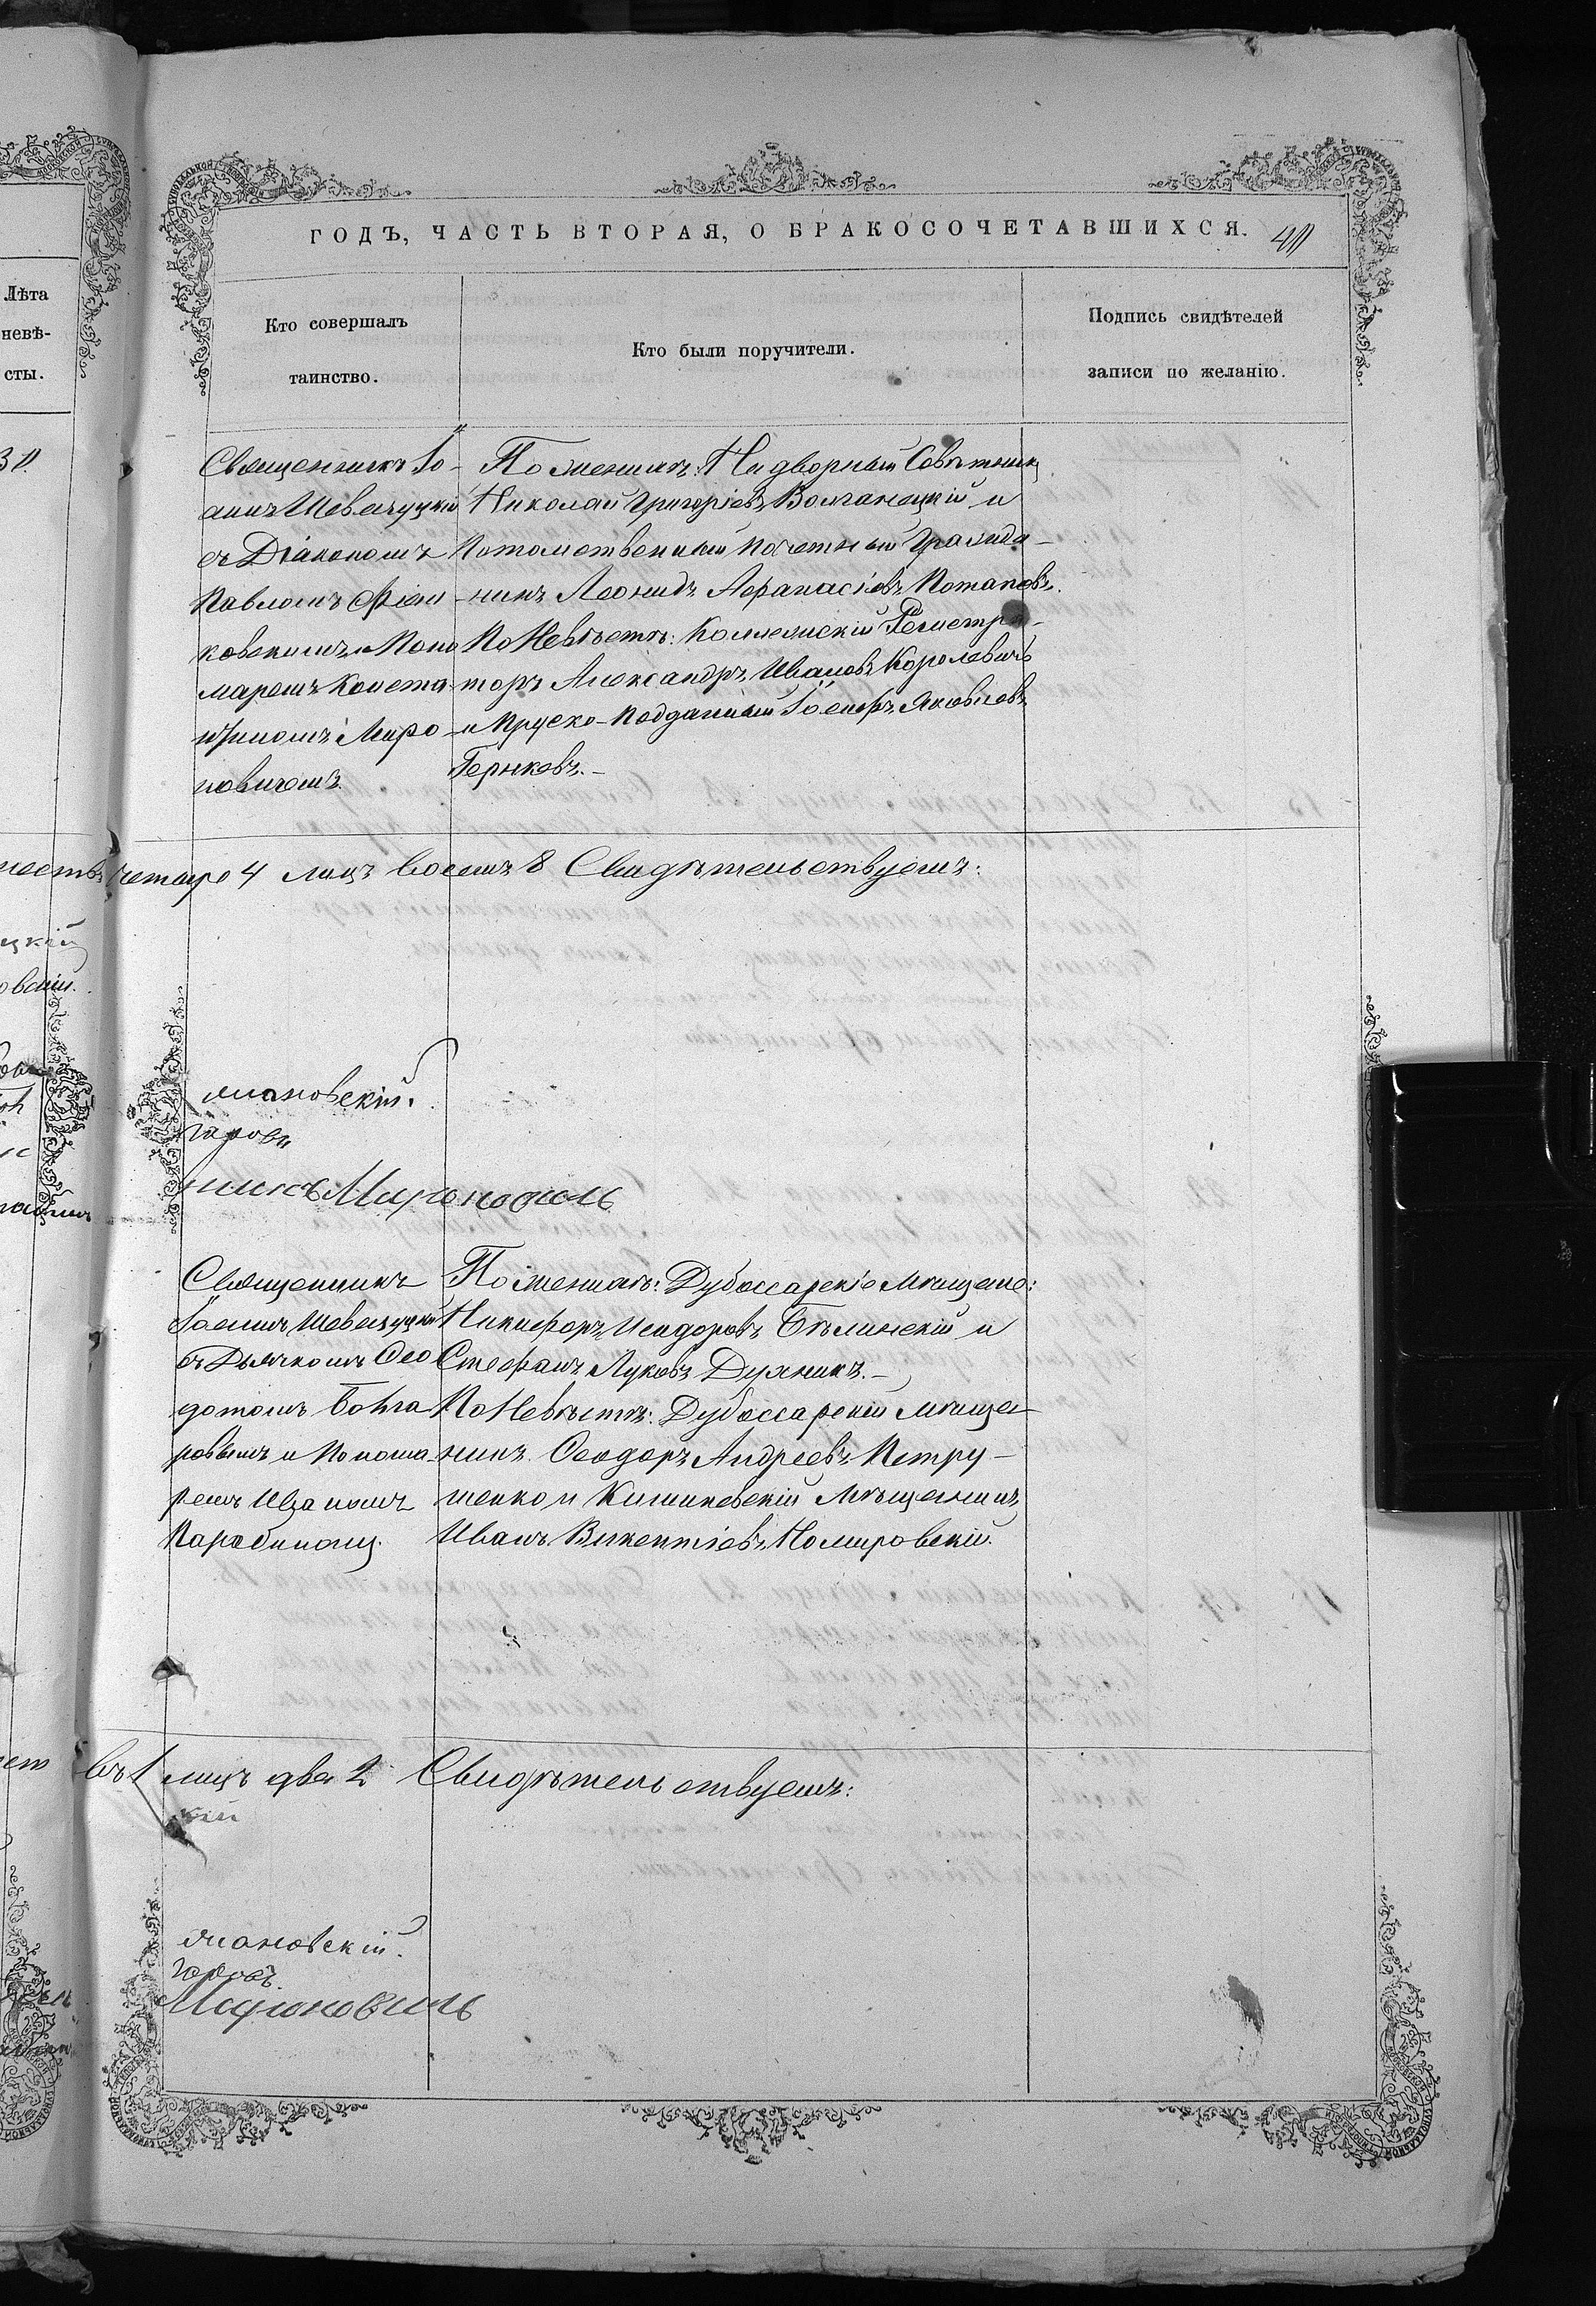 ГОДЪ, ЧАСТЬ ВТОРАЯ, О БРАКОСОЧЕТАВШИХСЯ.
Лѣта
невѣ-
сты.
Кто совершалъ
таинство.
Кто были поручители.
Подпись свидѣтелей
записи по желанію.
Священникъ Іо-
аннъ Шевчуцкій
съ Діакономъ
Павломъ
ковскимъ и Поно
маремъ Конста
нтиномъ Миро
новичемъ
По женихѣ: Надворный Совѣтникъ
Николай Григоріевъ Волчанецкій и
Потомственный Почетный Гражда-
нинъ Леонидъ Афанасіевъ Потаповъ.
По Невѣстѣ: Коллежскій Регистра-
торъ Александръ Ивановъ Королевичъ
и Пруско-Подданный Іосифъ Яковлевъ
Гернковъ.-
четыре 4 лицъ восемь 8 Свидѣтельствуемъ:
мановскій.
гаровъ
никъ Мироновичъ
Священникъ
Іоаннъ Шевчуцкій
съ Дьячкомъ Ѳео
дотомъ Болга
ровымъ и Понома-
ремъ Иваномъ
По женихѣ: Дубоссарскіе Мѣщане:
Никифоръ Исидоровъ Бѣлинскій и
Стефанъ Луковъ Дуяникъ.-
По Невѣстѣ: Дубоссарскій мѣща-
нинъ Ѳеодоръ Андреевъ Петру-
шенко и Кишиневскій Мѣщанинъ
Иванъ Викентіевъ Номировскій.
въ 1 лицъ два 2 Свидѣтельствуемъ:
кій
мановскій.
гаровъ.
Мироновичъ